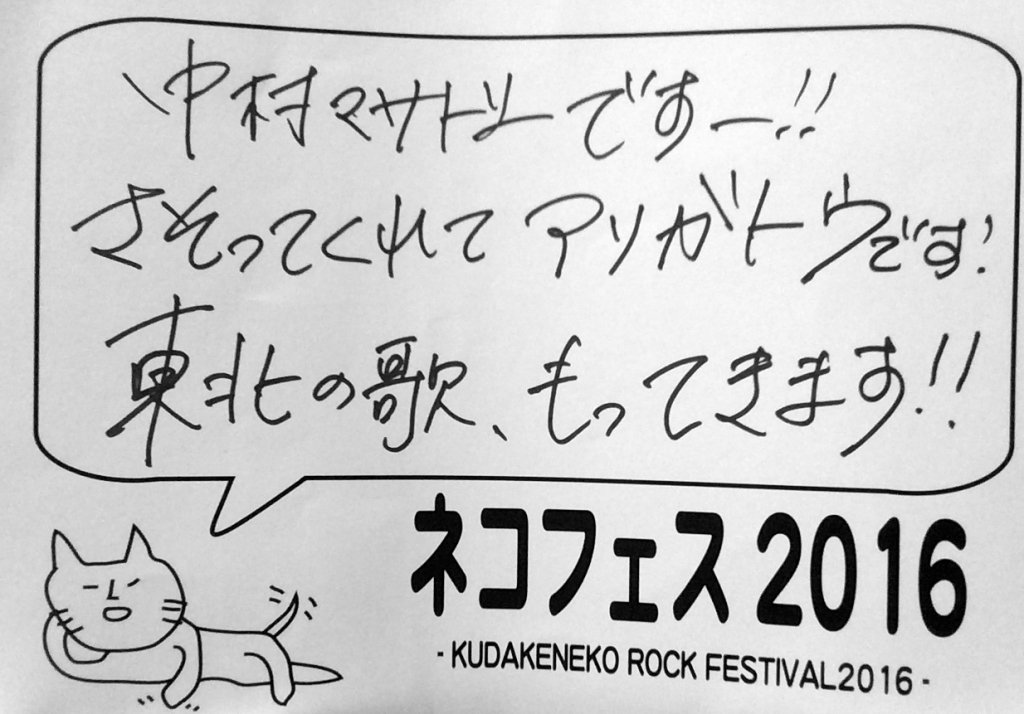 中村マサトシーですー!!
さそってくれてアリガトウです!
東北の歌、もってきます!!
ネコフェス2016
- KUDAKENEKO ROCK FESTIVAL2016 -